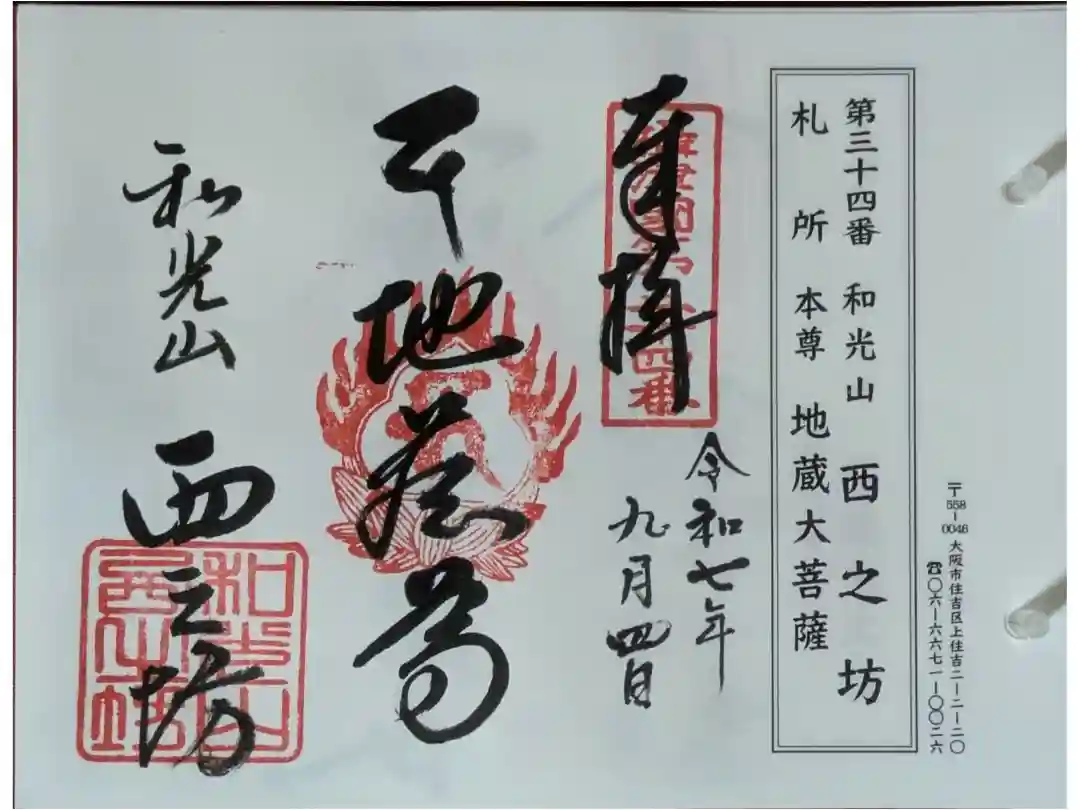 〒558-0046 大阪市住吉区上住吉二-二-二〇
☎〇六-六六七一-〇〇二六
第三十四番 和光山 西之坊
札所 本尊 地蔵大菩薩
奉拝
令和七年
九月四日
地蔵尊
和光山 西之坊
和光山
西之坊